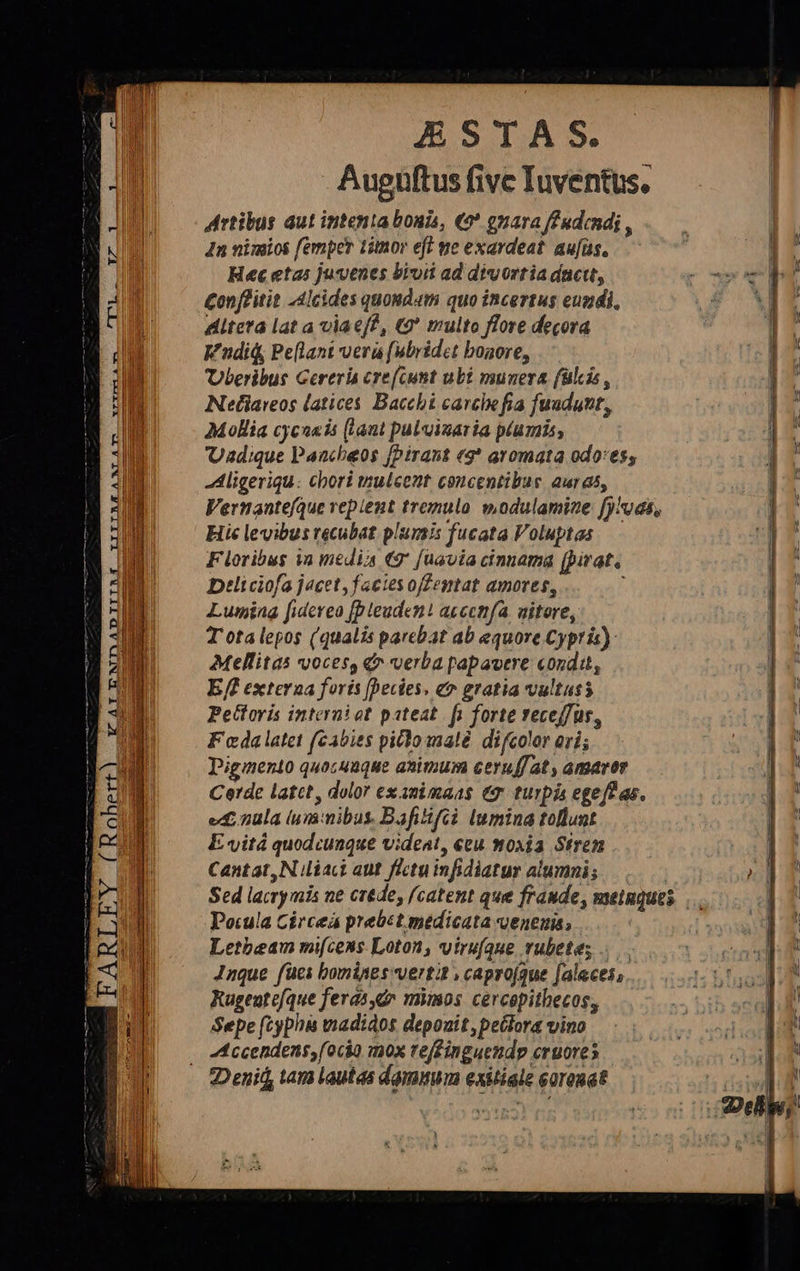 ÆSTAS.
Auguſtus ſive Iuventus.
Artibus aut intenta bonis, & gnara ſtudendi,
In nimios ſemper timor eſt ne exardeat auſus.
Hæc etas juvenes bivii ad divortia ducit,
Conſtitit Alcides quondam quo incertus eundi,
Altera lata via eſt, & multo flore decora
Undiq; Peſtani veris ſubridet honore,
Uberibus Cereris creſcunt ubi munera ſulcis,
Nectareos latices Bacchi carcheſia fundunt,
Mollia cycnæis ſtant pulvinaria plumis,
Undique Panchæos ſpirant & aromata odores,
Aligeriqu. chori mulcent concentibus auras,
Vernanteſque replent tremulo modulamine ſylvas,
Hic levibus recubat plumis fucata Voluptas
Floribus in mediis & ſuavia cinnama ſpirat.
Delicioſa jacet, facies oſtentat amores,
Lumina ſidereo ſplendent accenſa nitore,
Tota lepos (qualis parebat ab æquore Cypris)
Mellitas voces, & verba papavere condit,
Eſt externa foris ſpecies, & gratia vultus;
Pectoris interni at pateat ſi forte receſſus,
Fœda latet ſcabies picto malè diſcolor ori;
Pigmento quocunque animum ceruſſat, amaror
Corde latet, dolor exanimans & turpis egeſtas.
Æmula luminibus Baſiliſci lumina tollunt
E vitâ quodcunque videat, ceu noxia Siren
Cantat, Niliaci aut fletu inſidiatur alumni;
Sed lacrymis ne crede, ſcatent que fraude, meinques
Pocula Circeis prebet medicata venenis,
Lethæam miſcens Loton, viruſque rubetæ;
Inque ſues homines vertit, caproſque ſalaces,
Rugenteſque feras, & mimos cercopithecos,
Sepe ſcyphis madidos deponit, pectora vino
Accendens, ſocio mox reſtinguendo cruore;
Deniq; tam lautas damnum exitiale coronat
Deliti
FARLEY (Robert) KALENDARIUM HUMANAE VITAE